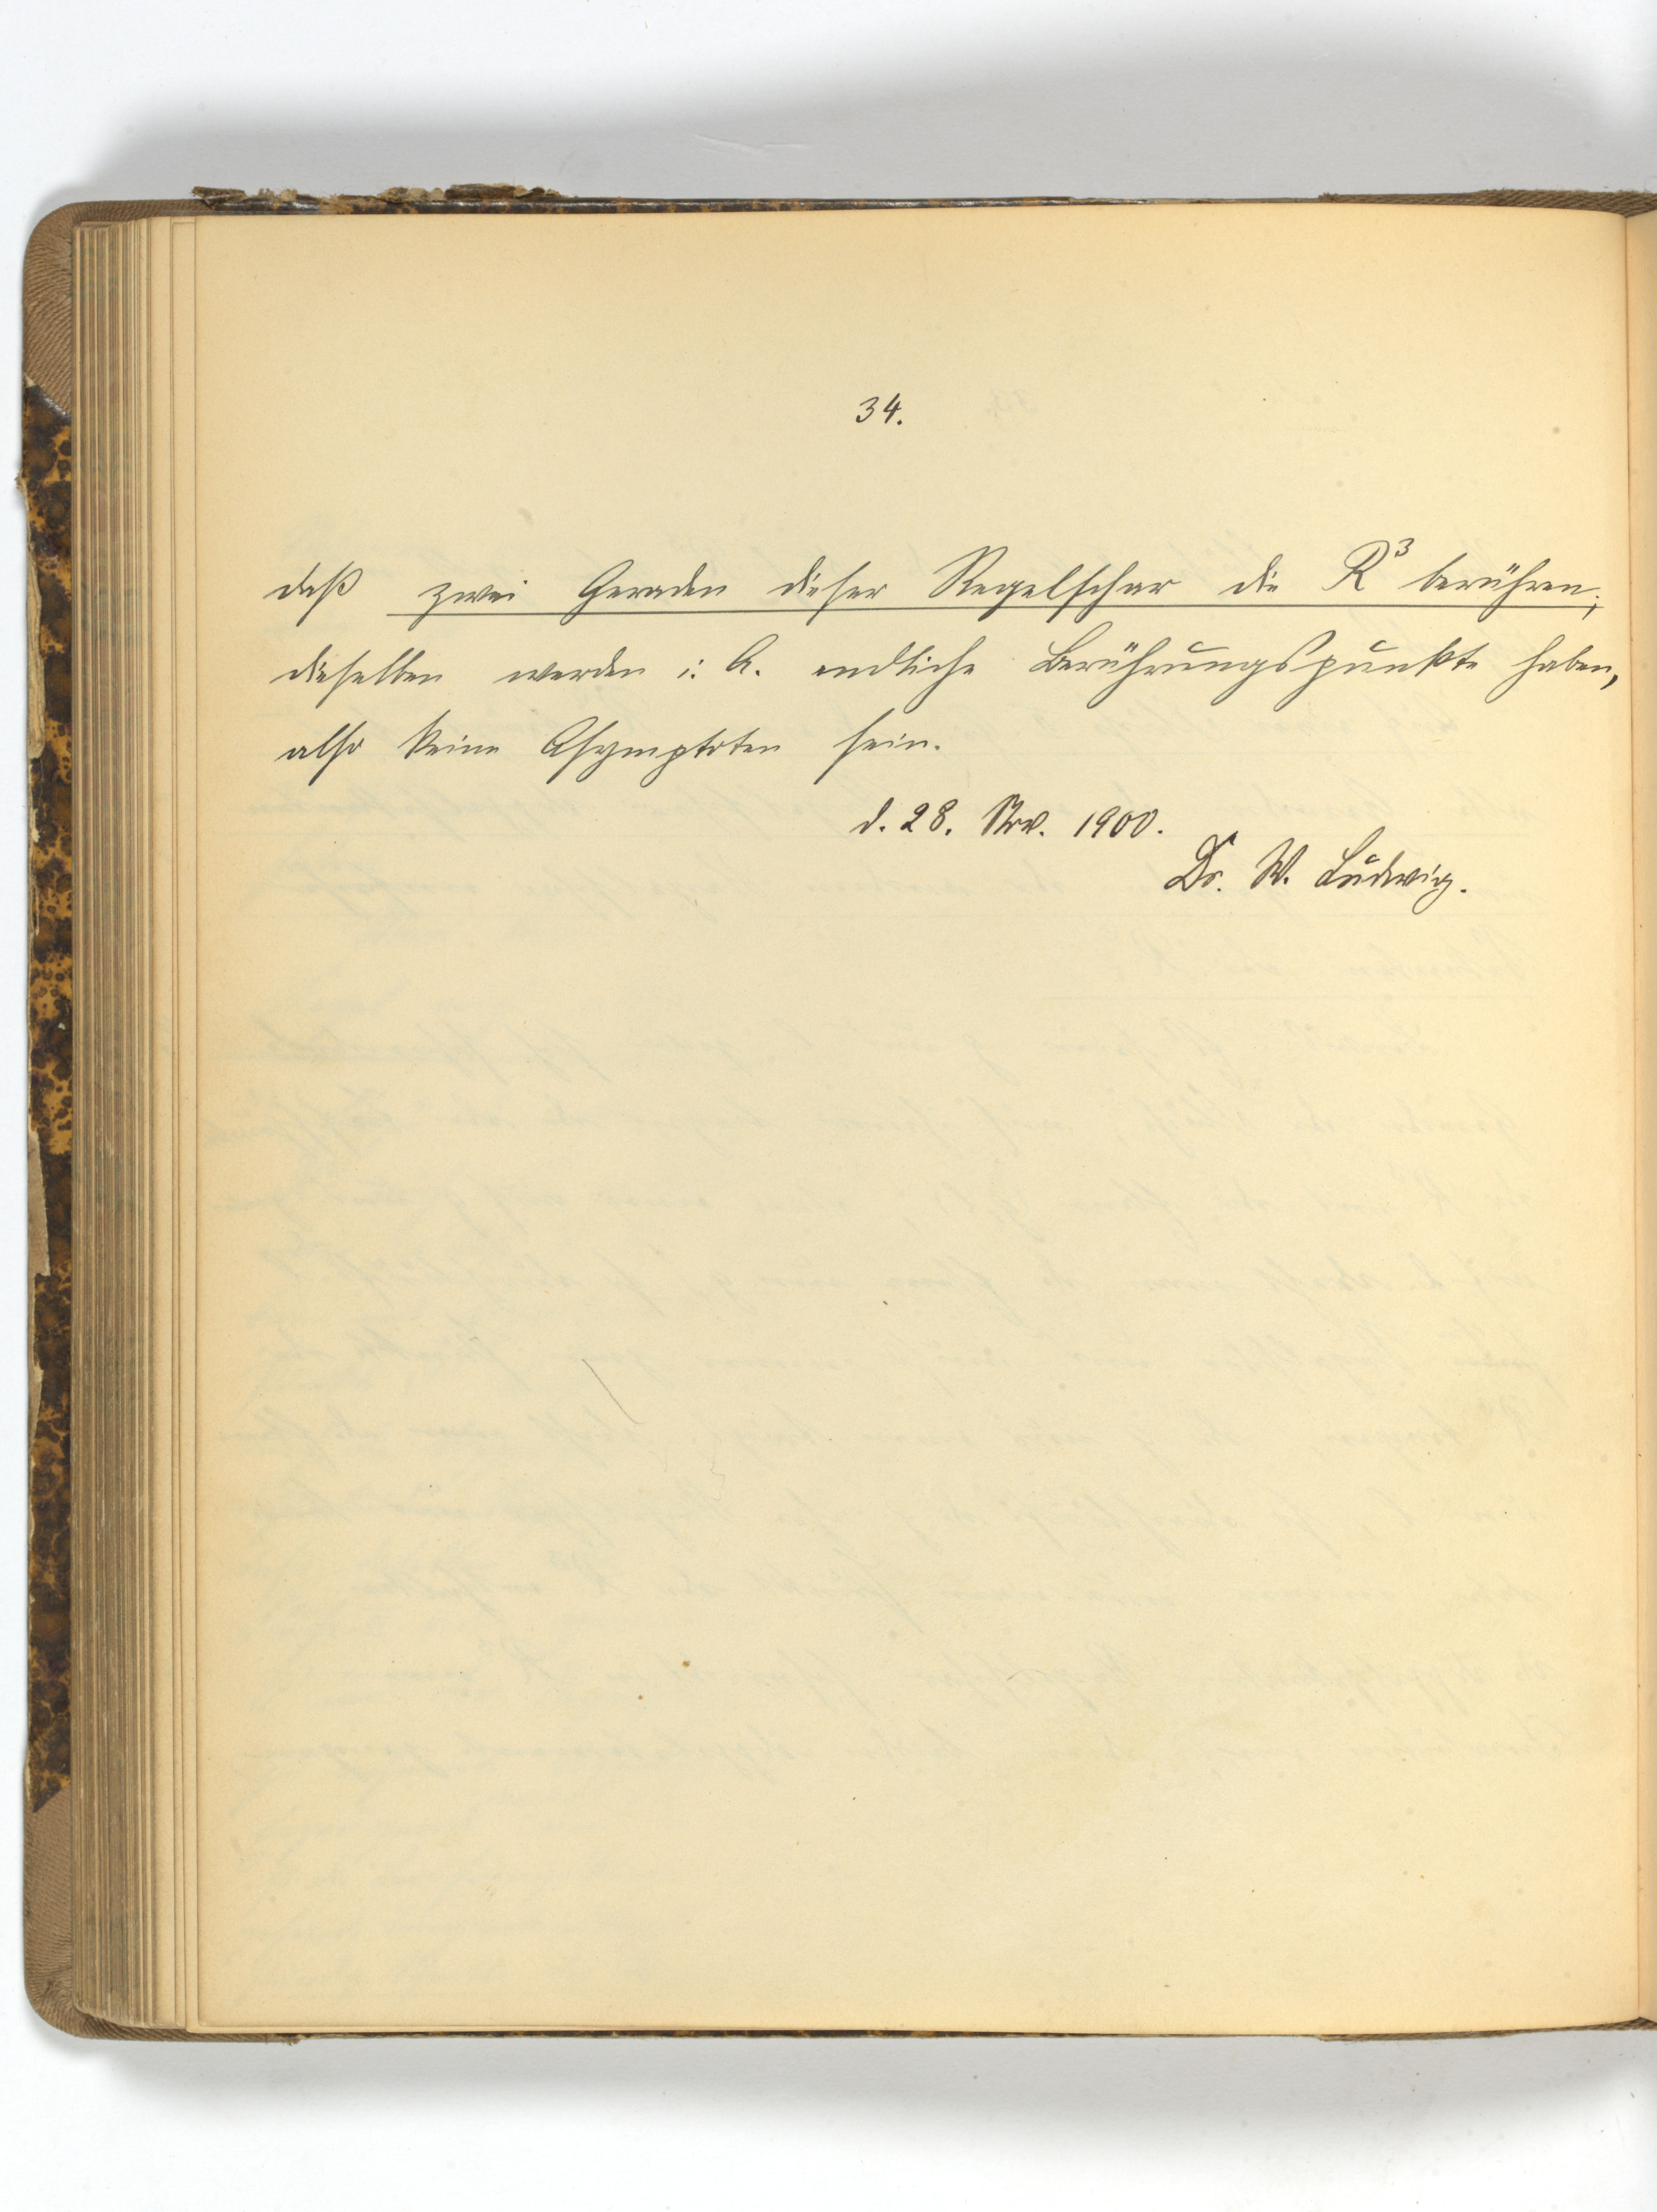 34.
daß zwei Geraden dieser Regelschar die R³ berühren;
dieselben werden i. A. endliche Berührungspunkte haben,
also keine Asymptoten sein.
d. 28. Nov. 1900.
Dr. W. Ludwig.